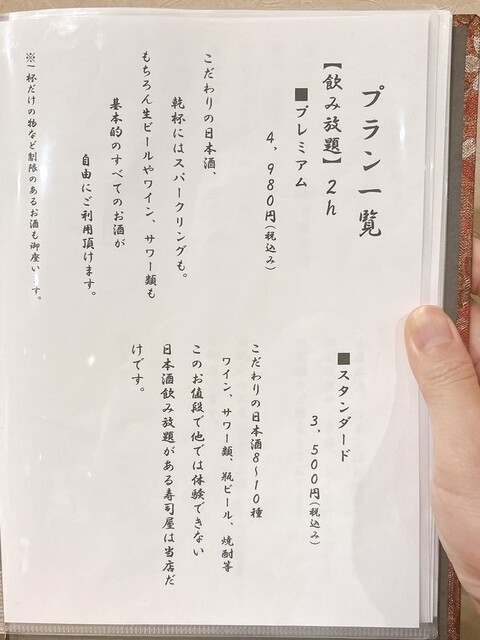 プラン一覧
【飲み放題】2h
■プレミアム
4,980円(税込み)
こだわりの日本酒、
乾杯にはスパークリングも。
もちろん生ビールやワイン、サワー類も
基本的のすべてのお酒が
自由にご利用頂けます。
※一杯だけの物など制限のあるお酒も御座います。
■スタンダード
3,500円(税込み)
こだわりの日本酒8~10種
ワイン、サワー類、瓶ビール、焼酎等
このお値段で他では体験できない
日本酒飲み放題がある寿司屋は当店だ
けです。